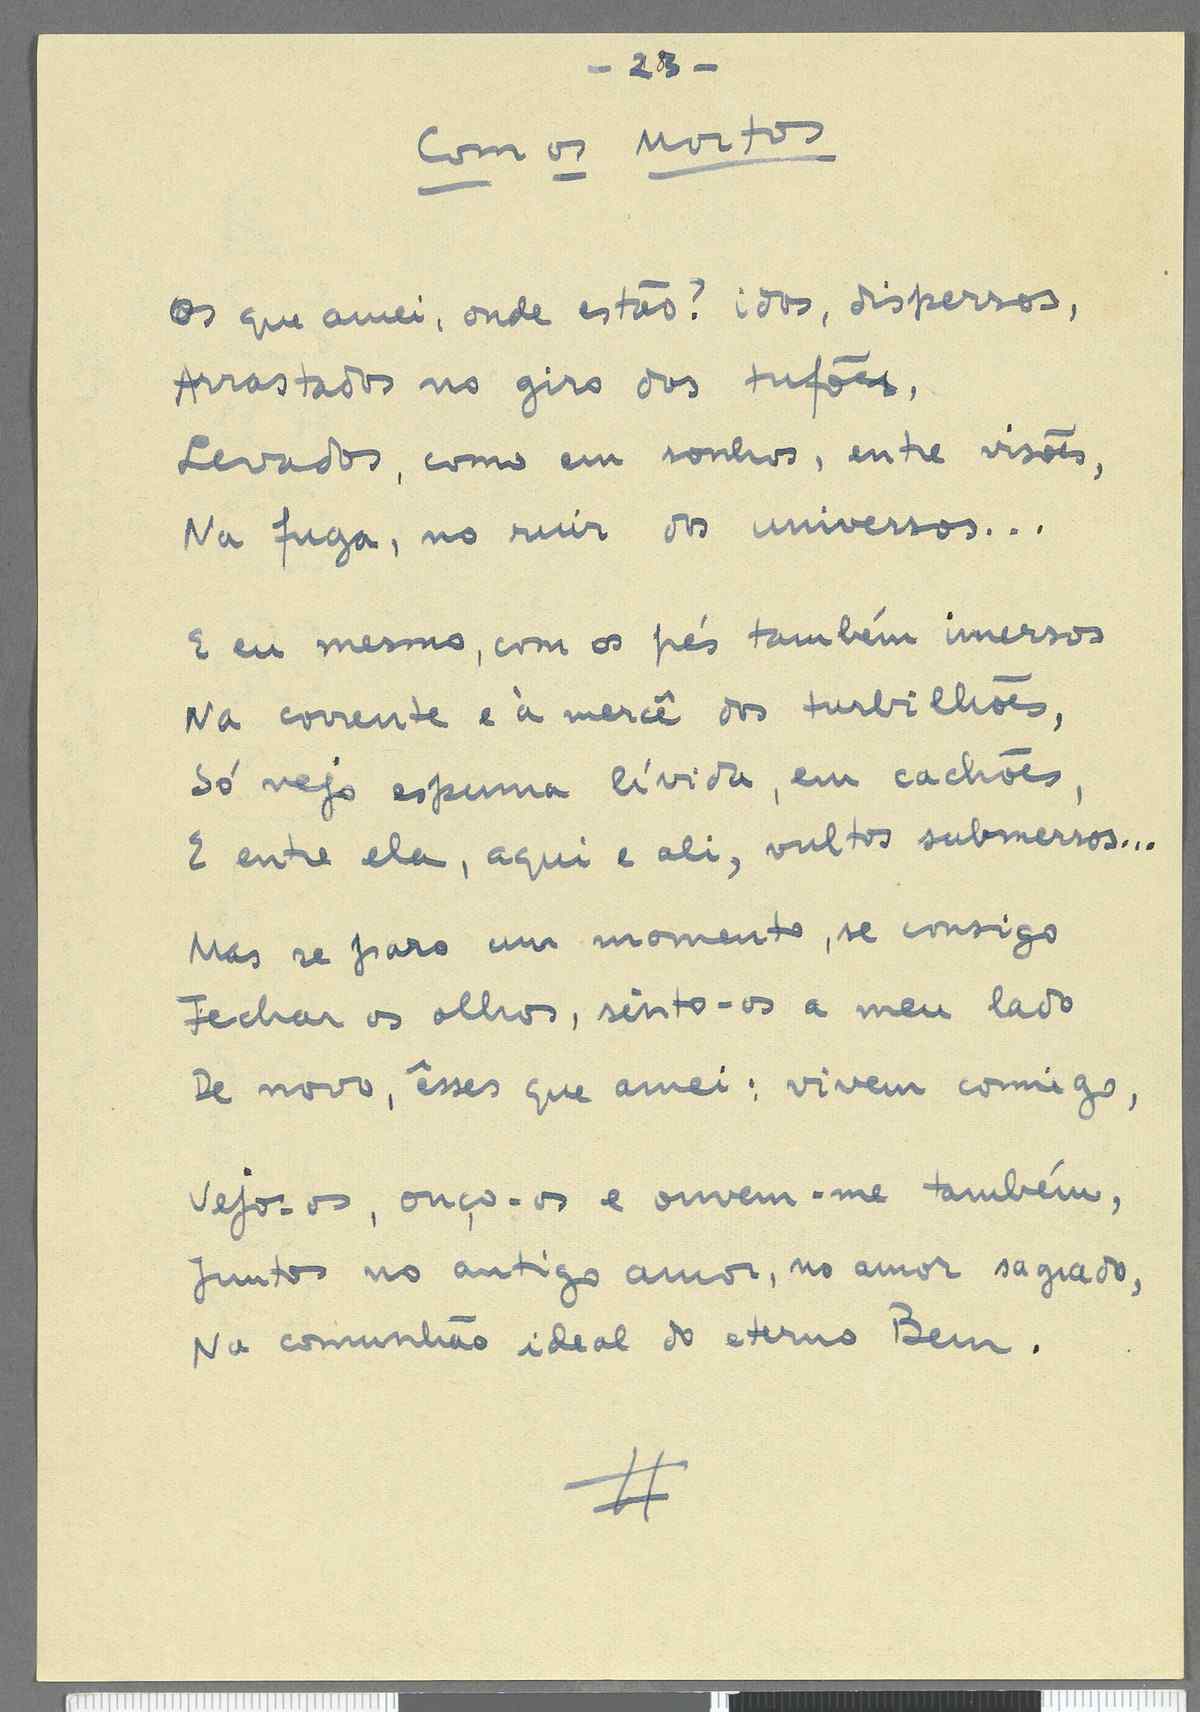 - 23 -
Com os Mortos
Os que amei, onde estão? idos, dispersos,
Arrastados no giro dos tufões,
Levados, como em sonhos, entre visões,
Na fuga, no ruir dos universos...
E eu mesmo, com os pés também imersos
Na corrente e à mercê dos turbilhões,
Só vejo espuma lívida, em cachões,
E entre ela, aqui e ali, vultos submersos...
Mas se paro um momento, se consigo
Fechar os olhos, sinto-os a meu lado
De novo, êsses que amei: vivem comigo,
Vejo-os, ouço-os e ouvem-me também,
Juntos no antigo amor, no amor sagrado,
Na comunhão ideal do eterno Bem.